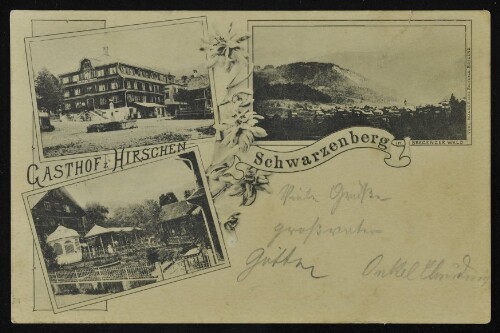 GASTHOF Z. HIRSCHEN
Schwarzenberg
IM
BREGENZER WALD
Viele Grüße
Großvater
Onkel